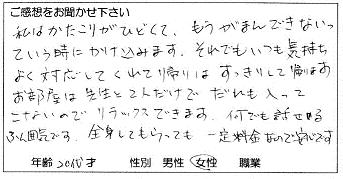 ご感想をお聞かせ下さい
私はかたこりがひどくて、もうがまんできないっ
ていう時にかけ込みます。それでもいつも気持ち
よく対応してくれて帰りはすっきりして帰ります
お部屋は先生と2人だけでだれも入って
こないのでリラックスできます。何でも話せる
ふん囲気です。全身してもらっても一定料金なので安心です
年齢 20代才 性別 男性 女性 職業